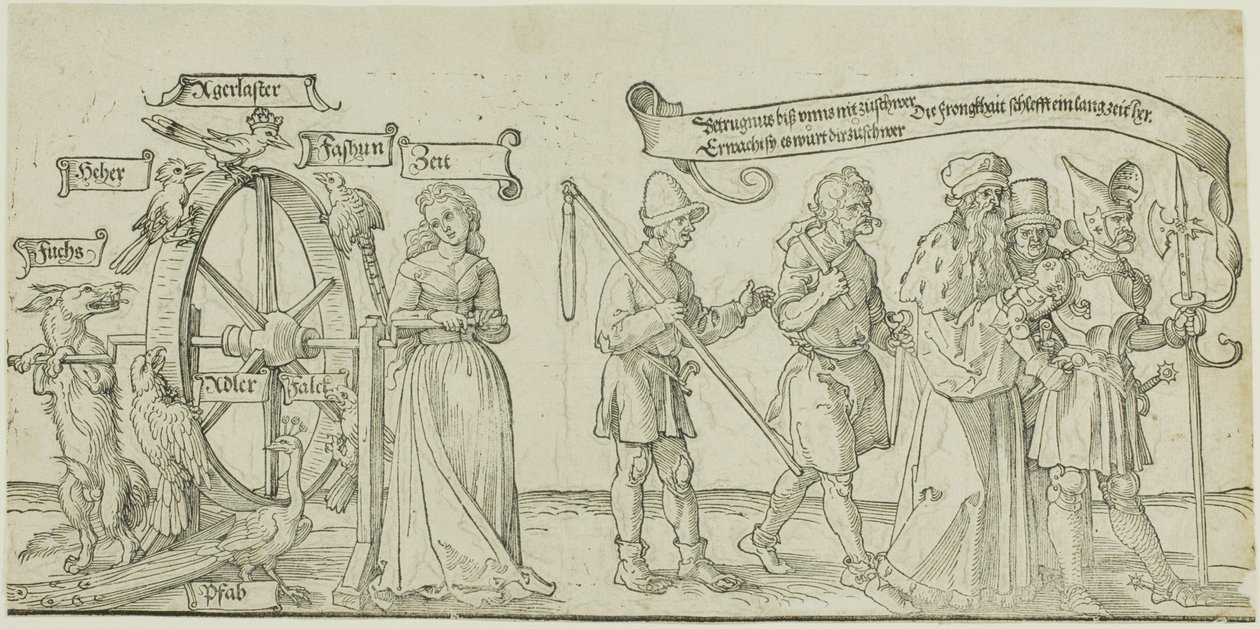 Agerlaster
Heher
Fashun
Zeit
Fuchs
Adler
Falck
Pfab
Betrugnus biß vnns nit zu schwer
Erwacht sy es würt dir zu schwer
Die Frongkhait schlefft ein lang zeit her.